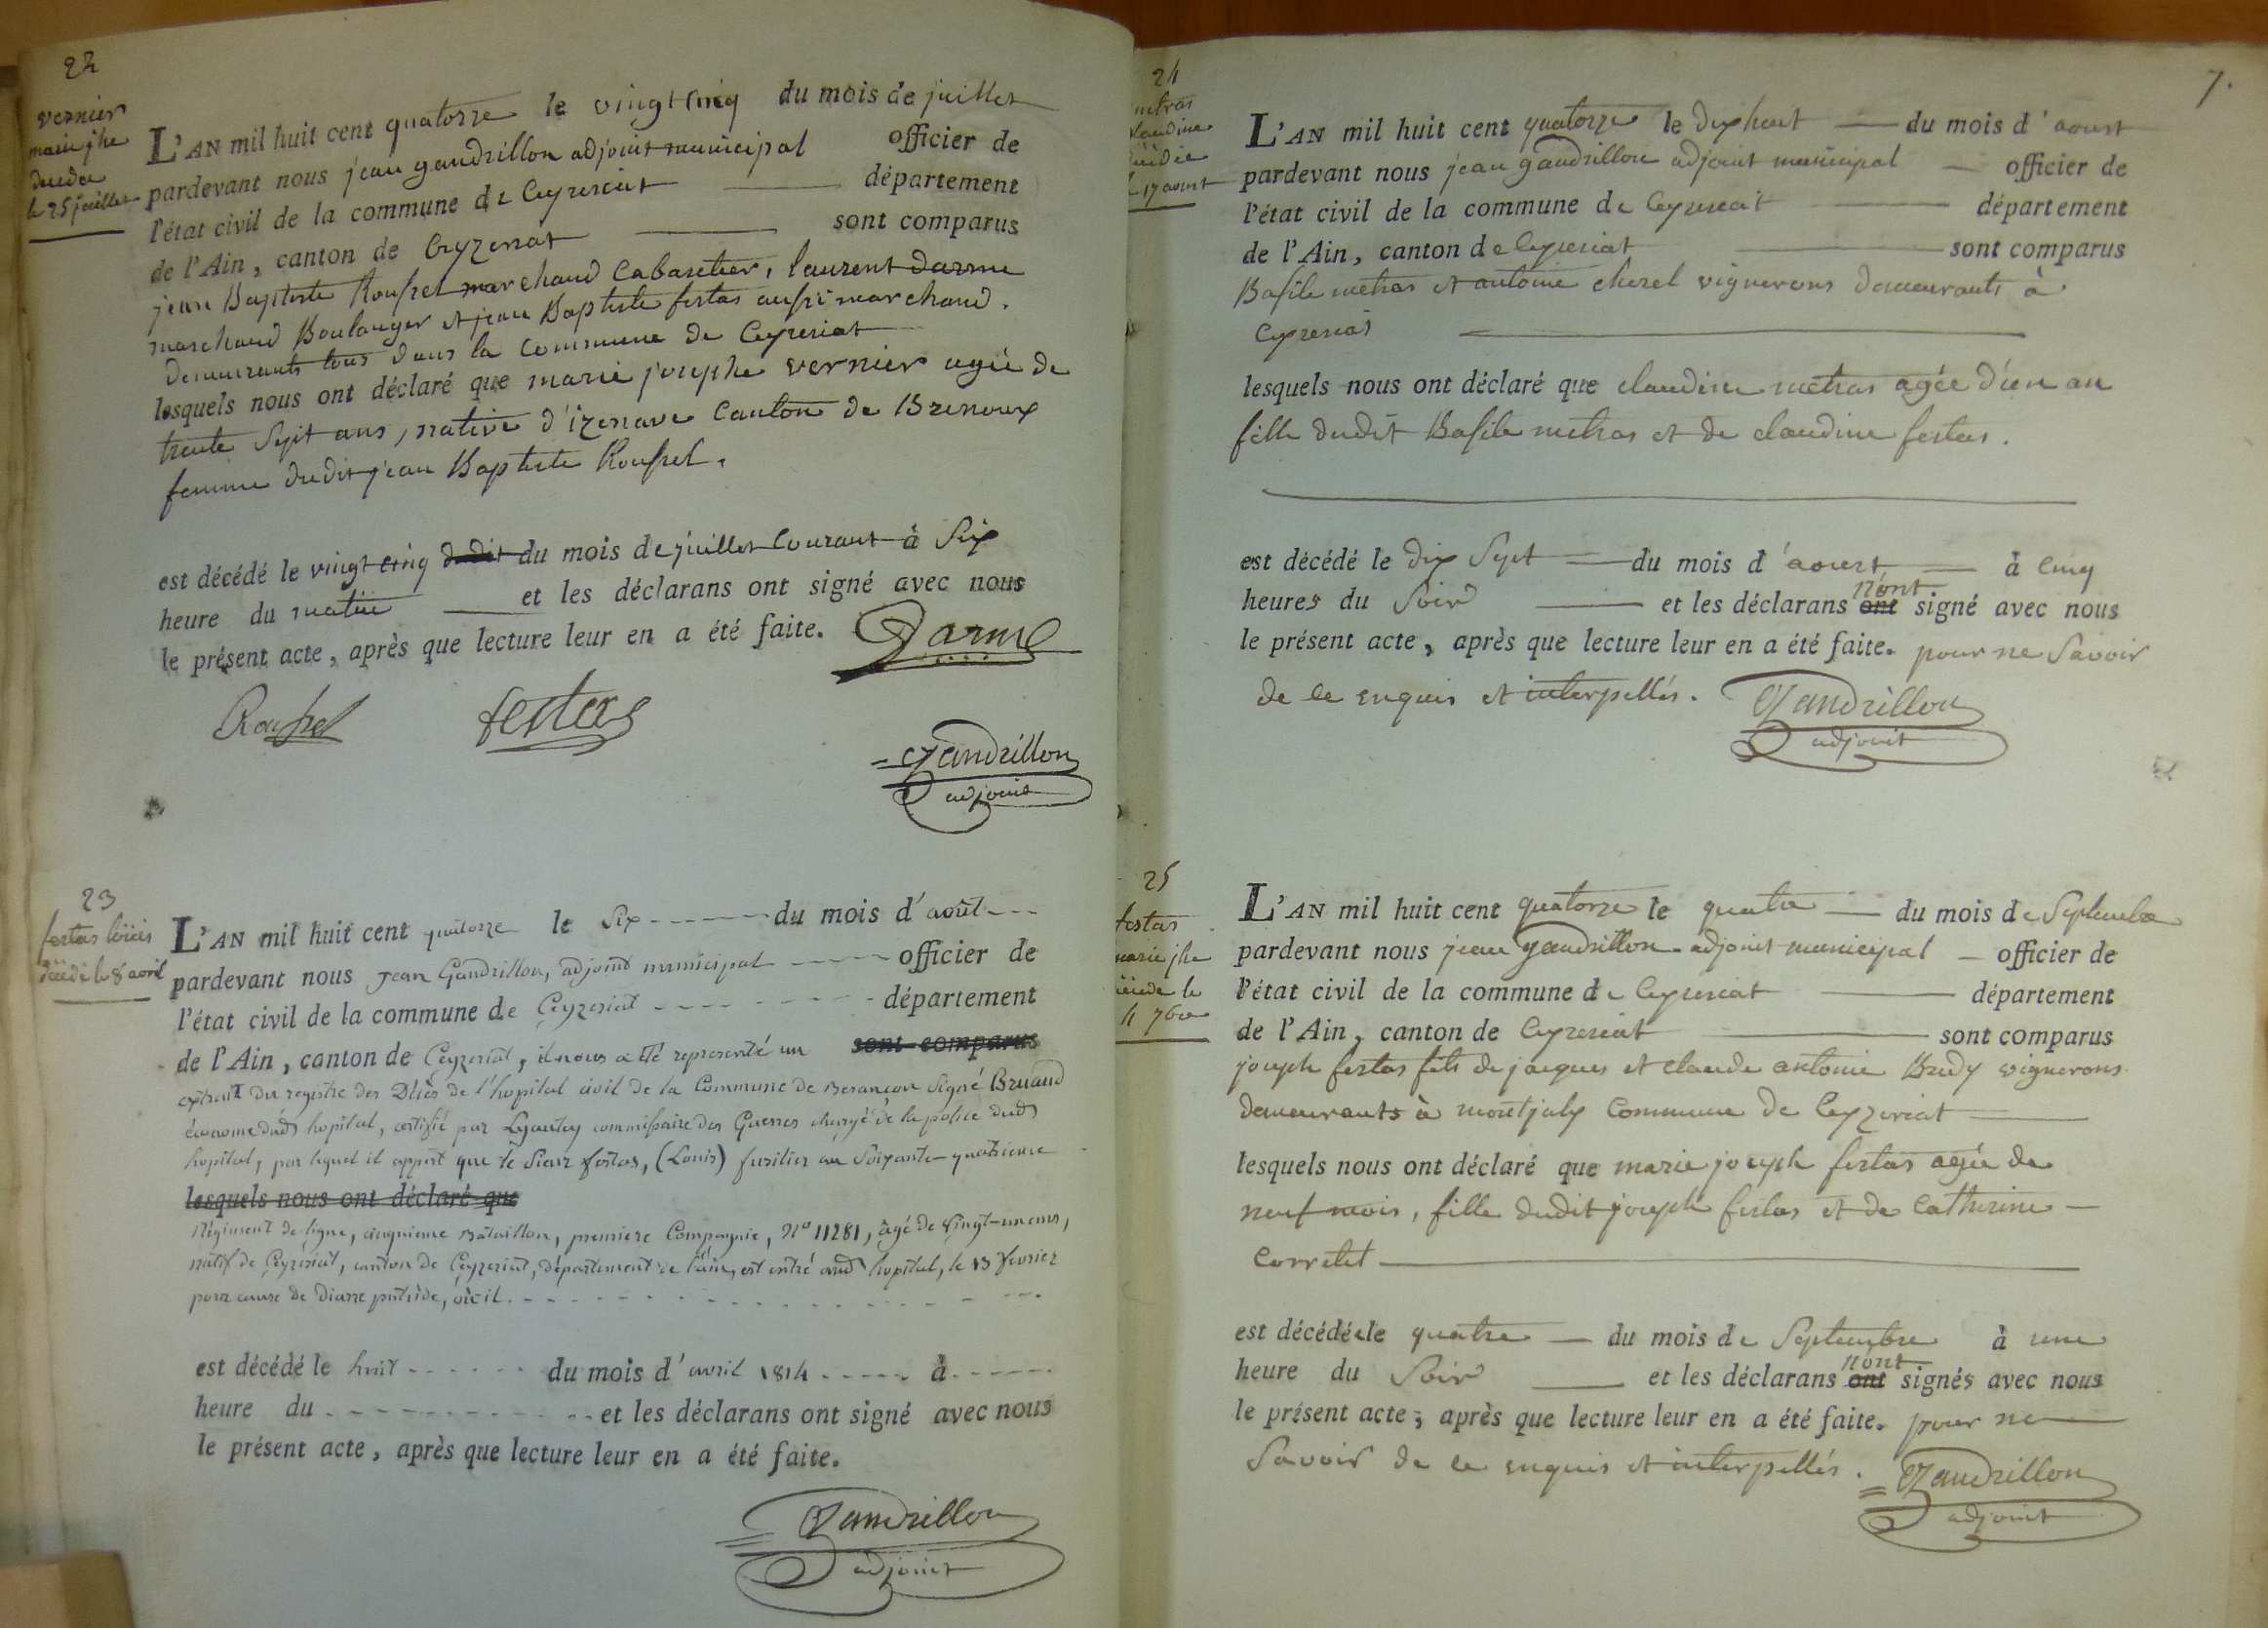 22
vernier
marie jhe
décédée
le 25 juillet
L'AN mil huit cent quatorze le vingt cinq du mois de juillet
pardevant nous jean gandrillon adjoint municipal officier de
l'état civil de la commune de Ceyzeriat département
de l'Ain, canton de Ceyzeriat sont comparus
jean Baptiste Roussel marchand Cabaretier, laurent darme
marchand Boulanger et jean Baptiste festas aussi marchand.
demeurants tous dans la Commune de Ceyzeriat
lesquels nous ont déclaré que marie josephe vernier agée de
trente sept ans, native d'izenave Canton de Brenoux
femme dudit jean Baptiste Roussel.
est décédé le vingt cinq dudit du mois de juillet Courant à Six
heure du matin et les déclarans ont signé avec nous
le présent acte, après que lecture leur en a été faite. Darme
Roussel festas
Gandrillon
adjoint
23
festas loüis
décédé le 8 avril
L'AN mil huit cent quatorze le Six du mois d'août
pardevant nous Jean Gandrillon, adjoint municipal officier de
l'état civil de la commune de Ceyzeriat département
de l'Ain, canton de Ceyzeriat, il nous a été representé un sont comparus
extrait du registre des Décès de l'hopital civil de la Commune de Besançon Signé Bruand
économe dud hopital, certifié par Lyautey commissaire des Guerres chargé de la police dud
hopital, par lequel il appert que le Sieur festas, (Louis) fusilier au Soixante-quatrieme
lesquels nous ont déclaré que
Régiment de ligne, cinquieme Bataillon, premiere Compagnie, N° 11281, agé de vingt-un ans,
natif de Ceyzeriat, canton de Ceyzeriat, département de l'ain, est entré aud hopital, le 13 fevrier
pour cause de Diarré putride, où il
est décédé le huit du mois d'avril 1814 à
heure du et les déclarans ont signé avec nous
le présent acte, après que lecture leur en a été faite.
Gandrillon
adjoint
7.
24
metras
laudine
le 17 aoust
L'AN mil huit cent quatorze le dix huit du mois d'aoust
pardevant nous jean gandrillon adjoint municipal officier de
l'état civil de la commune de Ceyzeriat département
de l'Ain, canton de Ceyzeriat sont comparus
Basile metras et antoine cherel vignerons demeurants à
Ceyzeriat
lesquels nous ont déclaré que claudine metras agée d'un an
fille dudit Basile metras et de claudine festas.
est décédé le dix Sept du mois d'aoust à Cinq
heures du Soir et les déclarans ont n'ont signé avec nous
le présent acte, après que lecture leur en a été faite. pour ne Savoir
de ce enquis et interpellés. Gandrillon
adjoint
25
festas
marie jhe
décédée le
4 7bre
L'AN mil huit cent quatorze le quatre du mois de Septembre
pardevant nous jean gandrillon adjoint municipal officier de
l'état civil de la commune de Ceyzeriat département
de l'Ain, canton de Ceyzeriat sont comparus
joseph festas fils de jacques et claude antoine Bredy vignerons
demeurants à montjuly Commune de Ceyzeriat
lesquels nous ont déclaré que marie joseph festas agée de
neuf mois, fille dudit joseph festas et de Catherine
Corretet
est décédée le quatre du mois de Septembre à une
heure du Soir et les déclarans ont n'ont signés avec nous
le présent acte, après que lecture leur en a été faite. pour ne
Savoir de ce enquis et interpellés. Gandrillon
adjoint